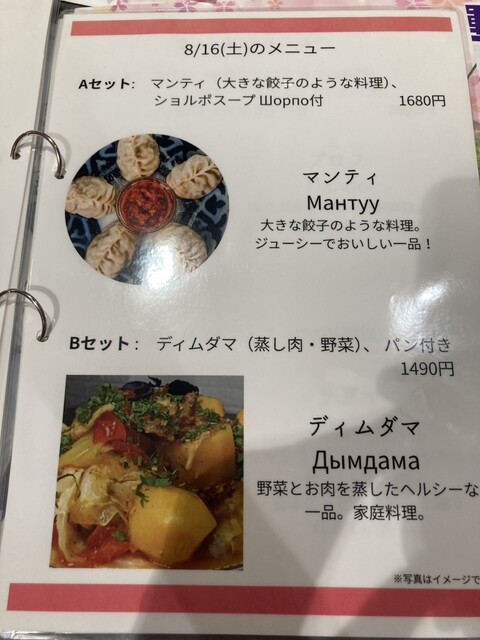 8/16(土)のメニュー
Aセット: マンティ（大きな餃子のような料理）、
ショルポスープ Шорпо付 1680円
マンティ
Мантуу
大きな餃子のような料理。
ジューシーでおいしい一品！
Bセット： ディムダマ（蒸し肉・野菜）、パン付き
1490円
ディムダマ
Дымдама
野菜とお肉を蒸したヘルシーな
一品。家庭料理。
※写真はイメージで